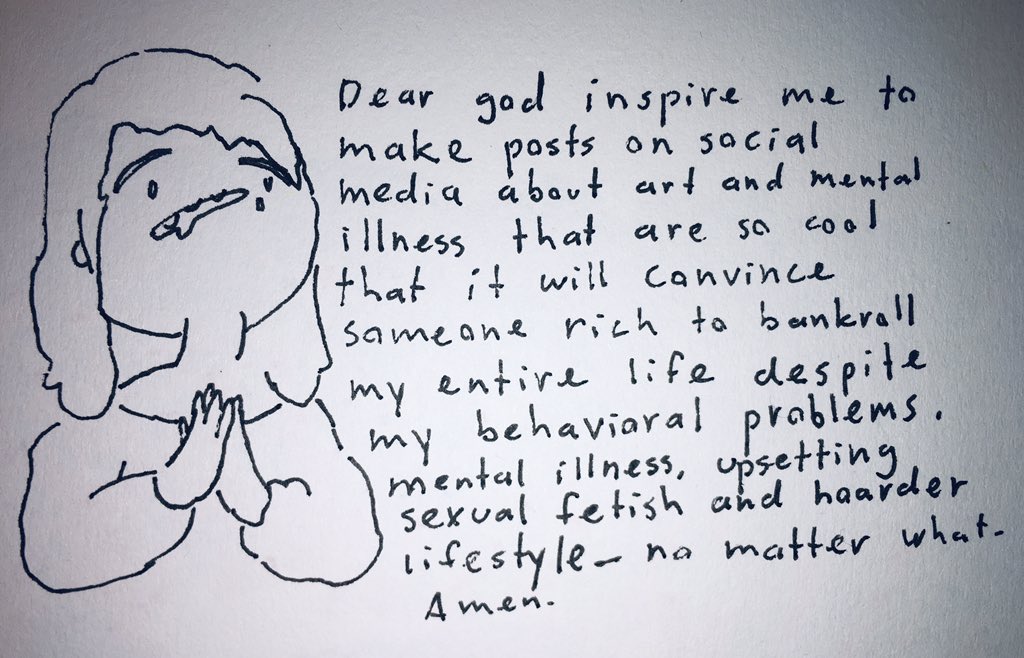 Dear god inspire me to
make posts on social
media about art and mental
illness that are so cool
that it will convince
someone rich to bankroll
my entire life despite
my behavioral problems.
mental illness, upsetting
sexual fetish and hoarder
lifestyle - no matter what.
Amen.